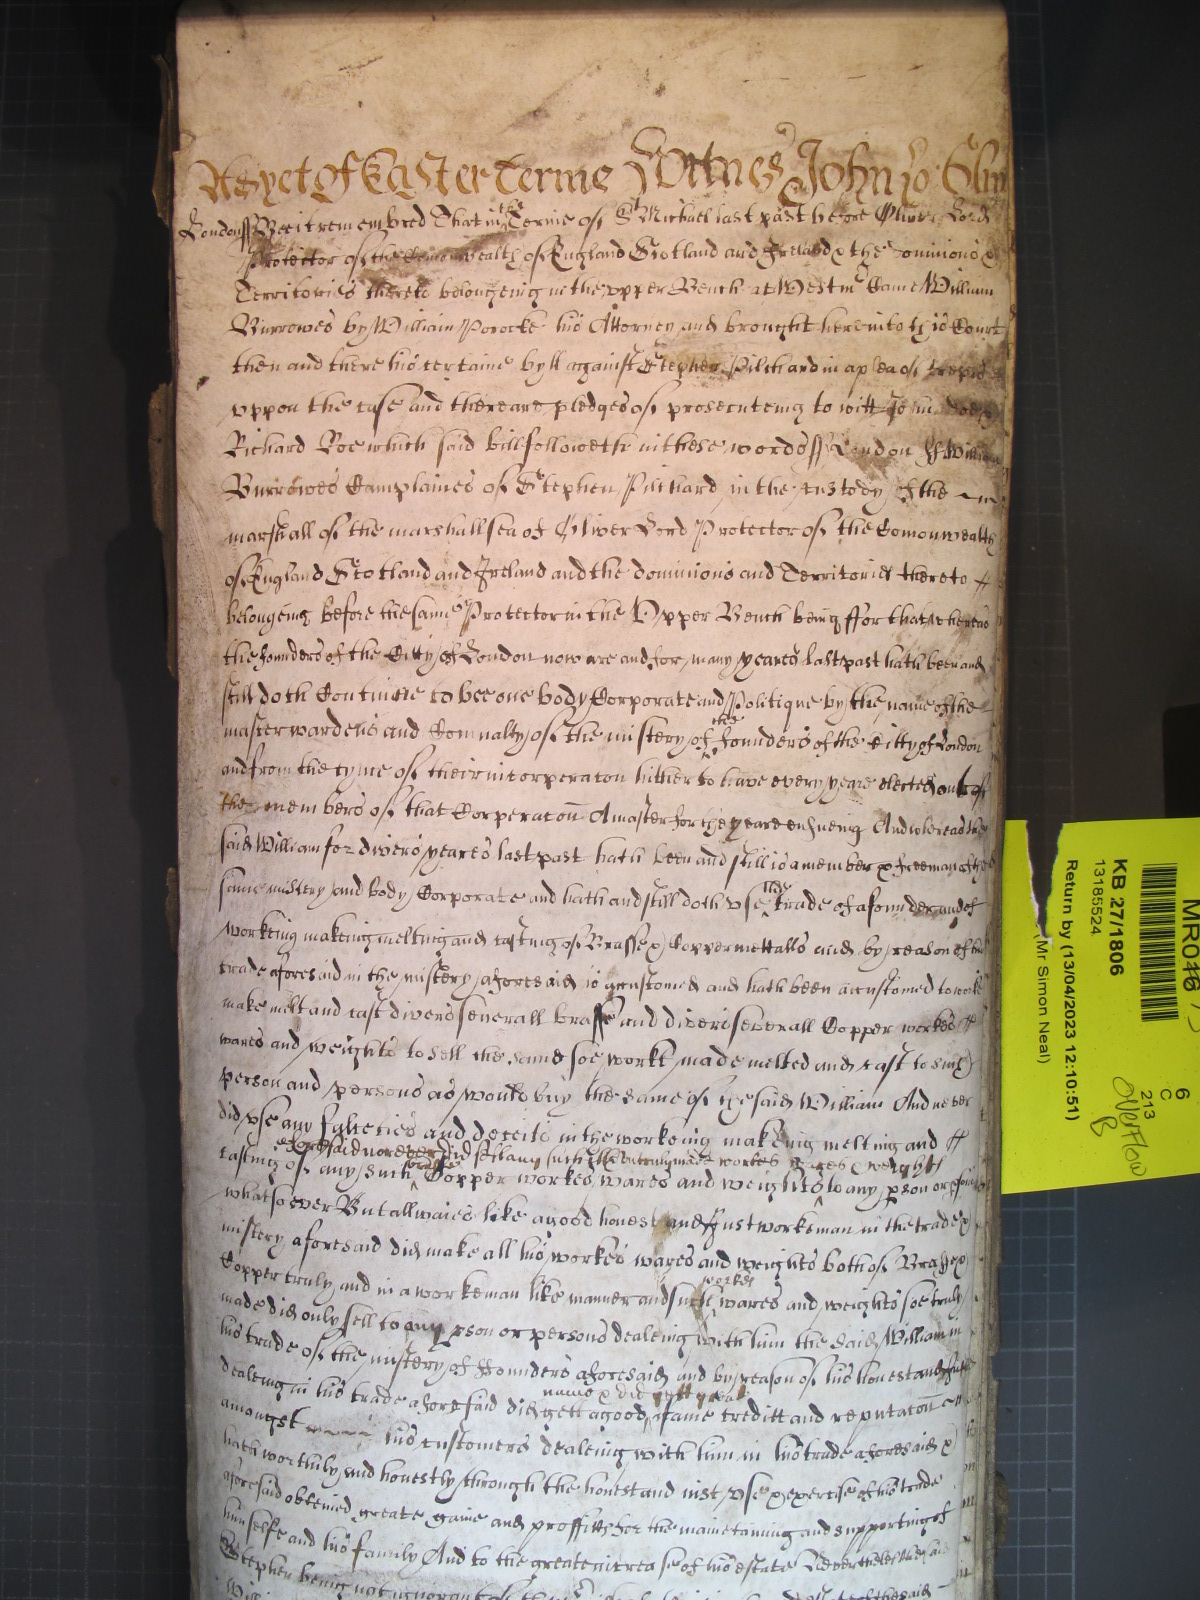 As yet of Easter Terme Wittnes John
London ss Bee it remembred That in the Terme of St Michael last past before Oliver Lord
Protector of the Comonwealth of England Scotland and Ireland & the dominions &
Territories thereto belongeing in the upper Bench at Westmr Came William
Burrowes by William Pococke his Attorney and brought here into this Court
then and there his certaine byll against Stephen Pilchard in a plea of trespas
uppon the case and there are pledges of prosecuteing to witt John doe &
Richard Roe which said bill followeth in these words ss London ss William
Burrowes Complaines of Stephen Pilchard in the custody of the
marshall of the marshallsea of Oliver Lord Protector of the Comonwealth
of England Scotland and Ireland and the dominions and Territories thereto
belongeing before the same Protector in the Upper Bench being ffor that whereas
the founders of the Citty of London now are and for many yeares last past hath been and
still doth Continue to bee one body Corporate and Politique by the name of the
master wardens and Comnalty of the mistery of the founders of the Citty of London
and from the tyme of their incorperaton hitherto have every yeare elected out of
the members of that Corperaton A master for the yeare ensueing And whereas the
said William for divers yeares last past hath been and still is a member & freeman of the
same mistery and body Corporate and hath and still doth use the trade of a founder and of
workeing makeing melting and casting of Brasse & Copper mettalls and by reason of his
trade aforesaid in the mistery aforesaid is accustomed and hath been accustomed to worke
make melt and cast divers severall brasse and divers severall Copper workes
wares and weights to sell the same soe workt made melted and cast to such
person and persons as would buy the same of the said William And never
did use any falceties and deceits in the workeing makeing melting and
aforesaid nor ever did sell any such untruly made workes wares & weights
casting of any such brasse Copper workes wares and weights to any pson or psons
whatsoever But allwaies like a good honest and Just workeman in the trade &
mistery aforesaid did make all his workes wares and weights both of Brasse &
Copper truly and in a workeman like manner and such workes wares and weights soe truly
made did only sell to any person or persons dealeing with him the said William in
his trade of the mistery of ffounders aforesaid and by reason of his honest and
dealeing in his trade aforesaid did gett a good name & fame creditt and reputaton
amongst his customers dealeing with him in his trade aforesaid &
hath worthily and honestly through the honest and iust use & exercise of his trade
aforesaid obteined greate gaine and proffitt for the maintaining and supporting of
himselfe and his family And to the greate increase of his estate Neverthelesse the said
Stephen being not ignorant of the
KB 27/1806
13185524
Return by (13/04/2023 12:10:51)
(Mr Simon Neal)
6
C
213
Overflow
B